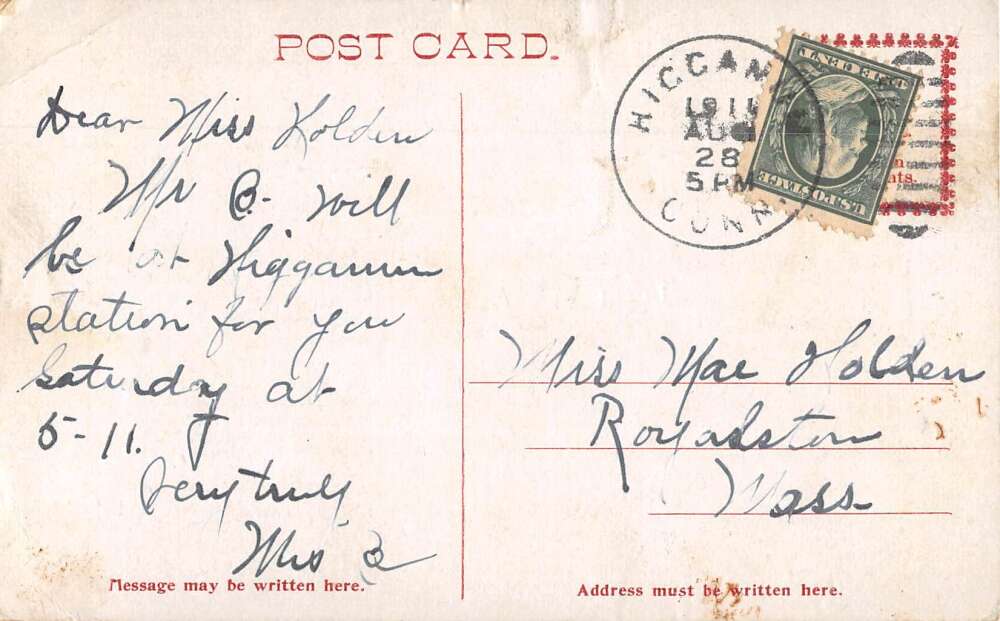 POST CARD.
HIGGANUM
1911
AUG
28
5 PM
CONN
U.S. POSTAGE
ts.
Dear Miss Holden
Mr B. will
be at Higganum
station for you
Saturday at
5-11.
Very truly
Mrs B
Miss Mae Holden
Royalston
Mass.
Message may be written here.
Address must be written here.